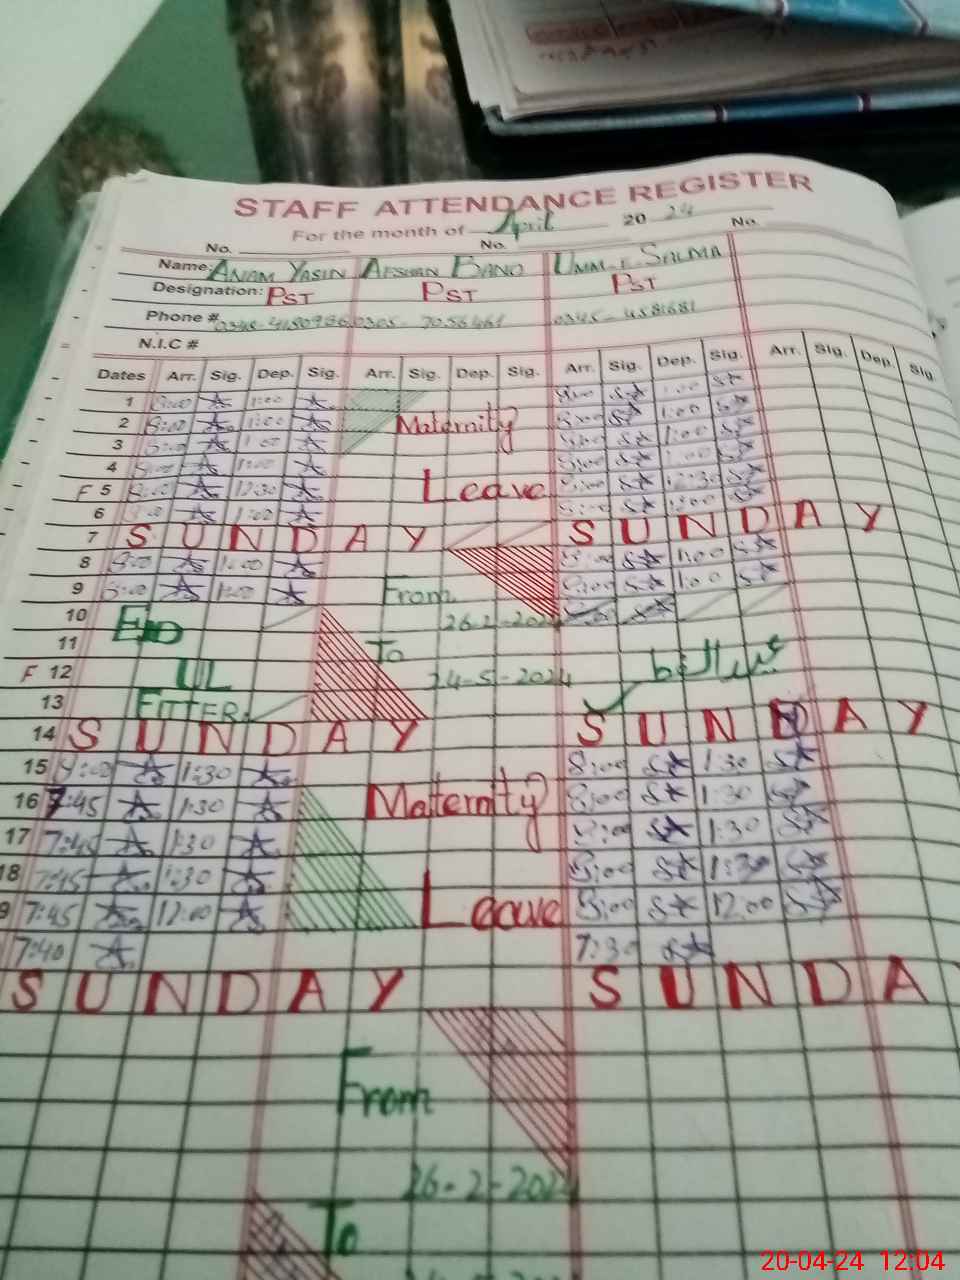 STAFF ATTENDANCE REGISTER
For the month of April 20 24
No. No. No.
Name: ANAM YASIN AFSHAN BANO UMM-E-SALMA
Designation: PST PST PST
Phone #
N.I.C #
Dates Arr. Sig. Dep. Sig. Arr. Sig. Dep. Sig. Arr. Sig. Dep. Sig. Arr. Sig. Dep. Sig.
1 8:00 1:00 8:00 1:00
2 8:00 1:00 Maternity 8:00 1:00
3 8:00 1:00 8:00 1:00
4 8:00 1:00 8:00 1:00
F 5 8:00 12:30 Leave 8:00 12:30
6 8:00 1:00 8:00 1:00
7 SUNDAY SUNDAY
8 8:00 1:00 8:00 1:00
9 8:00 1:00 From 8:00 1:00
10 EID 26-2-2024
11 To
F 12 UL 24-5-2024 عیدالفطر
13 FITTER
14 SUNDAY SUNDAY
15 8:00 1:30 8:00 1:30
16 7:45 1:30 Maternity 8:00 1:30
17 7:45 1:30 8:00 1:30
18 7:45 1:30 8:00 1:30
9 7:45 12:00 Leave 8:00 12:00
7:40 7:30
SUNDAY SUNDA
From
26-2-2024
To
20-04-24 12:04